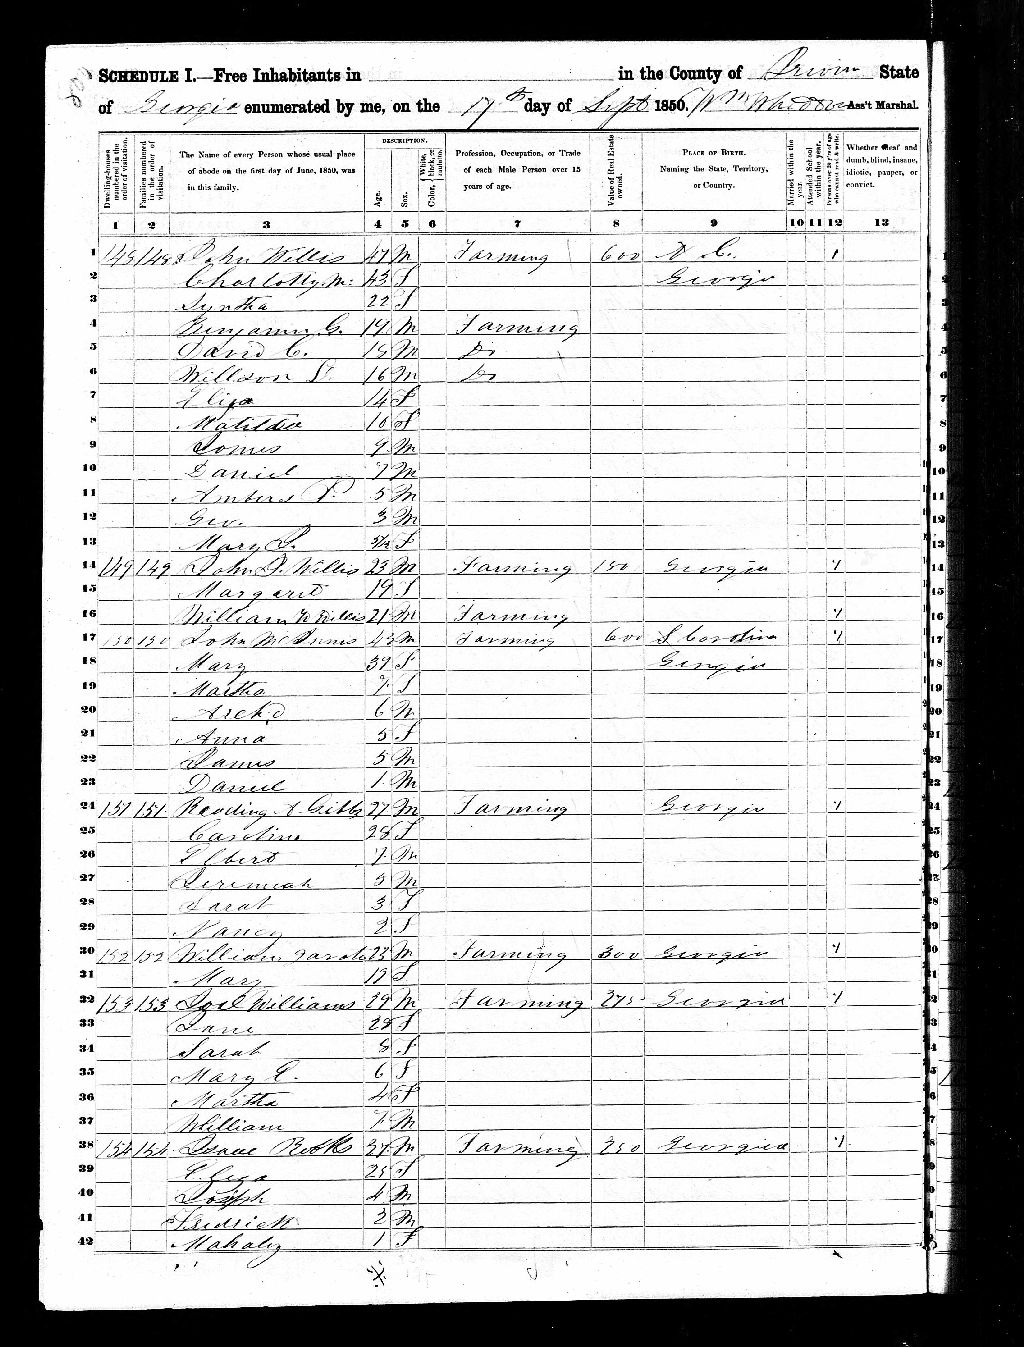 SCHEDULE I.—Free Inhabitants in in the County of Irwin State
of Georgia enumerated by me, on the 17th day of Sept 1850. Wm Ass't Marshal.
Dwelling-houses numbered in the order of visitation.
Families numbered in the order of visitation.
The Name of every Person whose usual place of abode on the first day of June, 1850, was in this family.
DESCRIPTION.
Age.
Sex.
Color, White, black, or mulatto.
Profession, Occupation, or Trade of each Male Person over 15 years of age.
Value of Real Estate owned.
PLACE OF BIRTH. Naming the State, Territory, or Country.
Married within the year.
Attended School within the year.
Persons over 20 y'rs of age who cannot read & write.
Whether deaf and dumb, blind, insane, idiotic, pauper, or convict.
1 2 3 4 5 6 7 8 9 10 11 12 13
1 148 148 John Willis 47 M Farming 600 N C. 1 1
2 43 F Georgia 2
3 Syntha 22 F 3
4 Benjamin G. 19 M Farming 4
5 David C. M Do 5
6 Willson 16 M Do 6
7 Eliza 14 F 7
8 Matilda 10 F 8
9 James 9 M 9
10 Daniel 7 M 10
11 5 M 11
12 Geo. 3 M 12
13 Mary F 13
14 149 149 John Willis 23 M Farming 150 Georgia 1 14
15 Margaret 19 F 15
16 William Willis 21 M Farming 1 16
17 150 150 John 43 M Farming 600 S Carolina 1 17
18 Mary 39 F Georgia 18
19 Martha 7 F 19
20 Arch'd 6 M 20
21 Anna 5 F 21
22 James 5 M 22
23 Daniel 1 M 23
24 151 151 Reading A Gibbs 27 M Farming Georgia 1 24
25 Caroline 28 F 25
26 Elbert 7 M 26
27 Jeremiah 5 M
28 Sarah 3 F 28
29 Nancy 2 F 29
30 152 152 William 23 M Farming 300 Georgia 1 30
31 Mary F 31
32 153 153 Joel Williams 29 M Farming 275 Georgia 1 32
33 Jane 28 F 33
34 Sarah 8 F 34
35 Mary E. 6 F 35
36 Martha 4 F 36
37 William M 37
38 154 154 Isaac 27 M Farming 250 Georgia 1 38
39 Eliza 25 F 39
40 Joseph 4 M 40
41 Fredrick 2 M 41
42 Mahaly 1 F